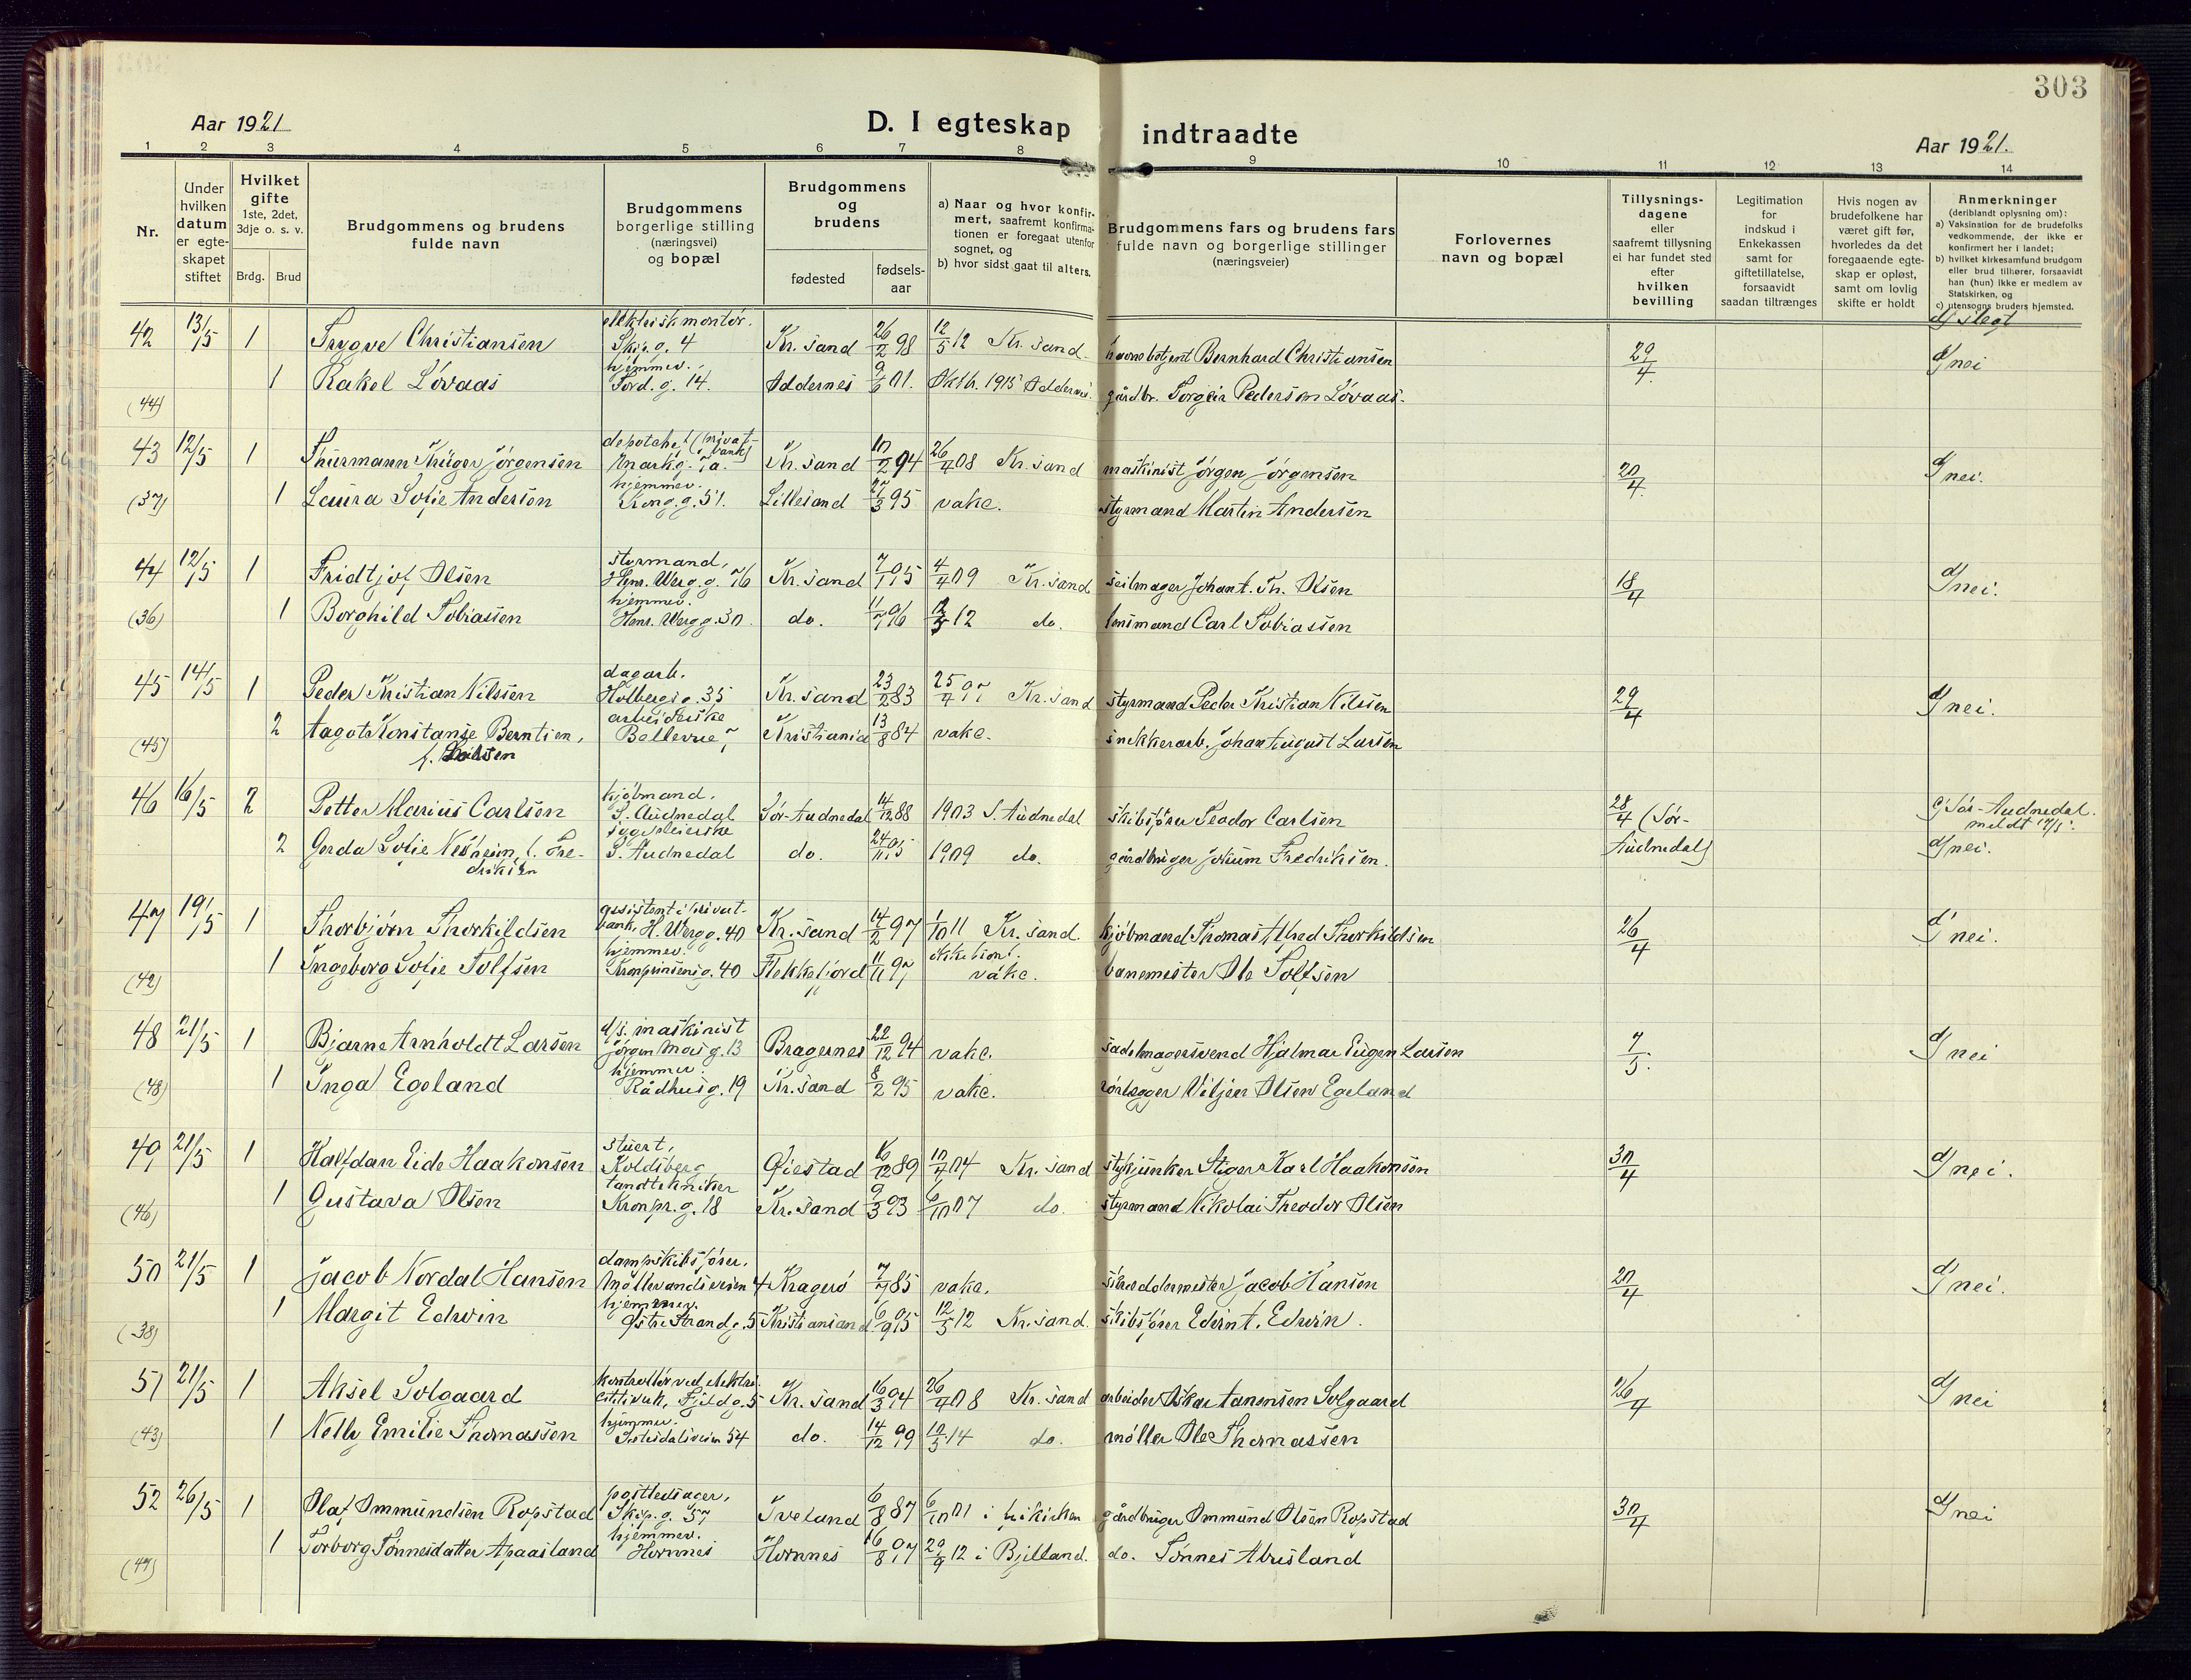 303
Aar 1921
D. I egteskap indtraadte
Aar 1921.
1 2 3 4 5 6 7 8 9 10 11 12 13 14
Nr.
Under hvilken datum er egte- skapet stiftet
Hvilket gifte 1ste, 2det, 3dje o. s. v.
Brdg. Brud
Brudgommens og brudens fulde navn
Brudgommens borgerlige stilling (næringsvei) og bopæl
Brudgommens og brudens
fødested
fødsels- aar
a) Naar og hvor konfir- mert, saafremt konfirma- tionen er foregaat utenfor sognet, og
b) hvor sidst gaat til alters.
Brudgommens fars og brudens fars fulde navn og borgerlige stillinger (næringsveier)
Forlovernes navn og bopæl
Tillysnings- dagene eller saafremt tillysning ei har fundet sted efter hvilken bevilling
Legitimation for indskud i Enkekassen samt for giftetillatelse, forsaavidt saadan tiltrænges
Hvis nogen av brudefolkene har været gift før, hvorledes da det foregaaende egte- skap er opløst, samt om lovlig skifte er holdt
Anmerkninger (deriblandt oplysning om):
a) Vaksination for de brudefolks vedkommende, der ikke er konfirmert her i landet;
b) hvilket kirkesamfund brudgom eller brud tilhører, forsaavidt han (hun) ikke er medlem av Statskirken, og
c) utensogns bruders hjemsted.
d) slegt
42 13/5 1 Trygve Christiansen elektriskmontør. Skip.g. 4 Kr.sand 26/2 98 12/5 12 Kr.sand. havnebetjent Bernhard Christiansen 29/4. d) nei
1 Rakel Løvaas hjemmev. Tord.g. 14. Oddernes 9/6 01. Oktbr. 1915 Oddernes. gårdbr. Torgeir Pedersen Løvaas.
(44)
43 12/5 1 Thürmann Krüger Jørgensen (privat- bank) Mark.g. 7a. Kr.sand 10/2 94 26/4 08 Kr.sand maskinist Jørgen Jørgensen 20/4. d) nei.
(37) 1 Laura Sofie Andersen hjemmev. Kong.g. 51. Lillesand 27/3 95 vake. styrmand Martin Andersen
44 12/5 1 Fridtjof Olsen styrmand, Henr. Werg.g. 76 Kr.sand 7/1 95 4/4 09 Kr.sand seilmager Johan t. Th. Olsen 18/4 d) nei.
(36) 1 Borghild Tobiassen hjemmev. Henr. Werg.g. 30 do. 11/7 96 12/5 12 do. lensmand Carl Tobiassen
45 14/5 1 Peder Kristian Nilssen dagarb. Holbergsg. 35 Kr.sand 23/2 83 25/4 97 Kr.sand styrmand Peder Kristian Nilssen 29/4 d) nei.
2 Aagot Konstanse Berntsen, arbeiderske Bellevue 7 Kristiania 13/8 84 vake. snekkerarb. Johan August Larsen
(45) f. Larsen
46 16/5 2 Petter Marius Carlsen kjøbmand. S. Audnedal Sør-Audnedal 14/12 88 1903 S. Audnedal skibsfører Teodor Carlsen 28/4 (Sør- Audnedal) c) Sør-Audnedal. meldt 17/5.
2 Gerda Sofie Nesheim, f. Fre- driksen sygepleierske S. Audnedal do. 24/11 95 1909 do. gårdbruger Jokum Fredriksen. d) nei.
47 19/5 1 Thorbjørn Thorkildsen assistent i privat- bank, H. Werg.g. 40 Kr.sand 14/2 97 1/10 11 Kr.sand. kjøbmand Thomas Alfred Thorkildsen 26/4 d) nei.
1 Ingeborg Sofie Tolfsen hjemmev. Kronprinsensg. 40 Flekkefjord 11/11 97 vake. banemester Ole Tolfsen
(42)
48 21/5 1 Bjarne Arnholdt Larsen d/s. maskinist Jørgen Moesg. 13 Bragernes 22/12 94 vake. sadelmagersvend Hjalmar Eugen Larsen 7/5. d) nei
(48) 1 Inga Egeland hjemmev Rådhusg. 19 Kr.sand 8/2 95 vake. rørlægger Viljær Olsen Egeland
49 21/5 1 Halfdan Eide Haakonsen stuert, Koldsberg Øiestad 6/12 89 10/4 04 Kr.sand stykjunker Stiger Karl Haakonsen 30/4 d) nei.
(46) 1 Gustava Olsen tandtekniker Kronpr.g. 18 Kr.sand 9/3 93 6/10 07 do. styrmand Nikolai Theodor Olsen
50 21/5 1 Jacob Nordal Hansen dampskibsfører. Møllevandsveien 4 Kragerø 7/7 85 vake. Jacob Hansen 20/4 d) nei.
1 Margit Edwin hjemmev. Østre Strandg. 5 Kristiansand 6/9 95 12/5 12 Kr.sand. skibsfører Edwin t. Edwin.
(38)
51 21/5 1 Aksel Solgaard kontrollør ved elektri- citetsvæk, Fjeldg. 5 Kr.sand 16/3 94 26/4 08 Kr.sand arbeider Oskar Aanensen Solgaard 26/4 d) nei
(43) 1 Nelly Emilie Thomassen hjemmev. Setesdalsveien 54 do. 14/12 99 10/5 14 do. møller Ole Thomassen
52 26/5 1 Olaf Ommundsen Ropstad postledsager, Skip.g. 37 Iveland 6/8 87 6/10 01 i frikirken gårdbruger Ommund Olsen Ropstad 30/4 d) nei
1 Torborg Tønnesdatter Apaasland hjemmev. Hornnes Hornnes 16/8 97 29/9 12 i Bjelland. do. Tønnes Abusland
(47)